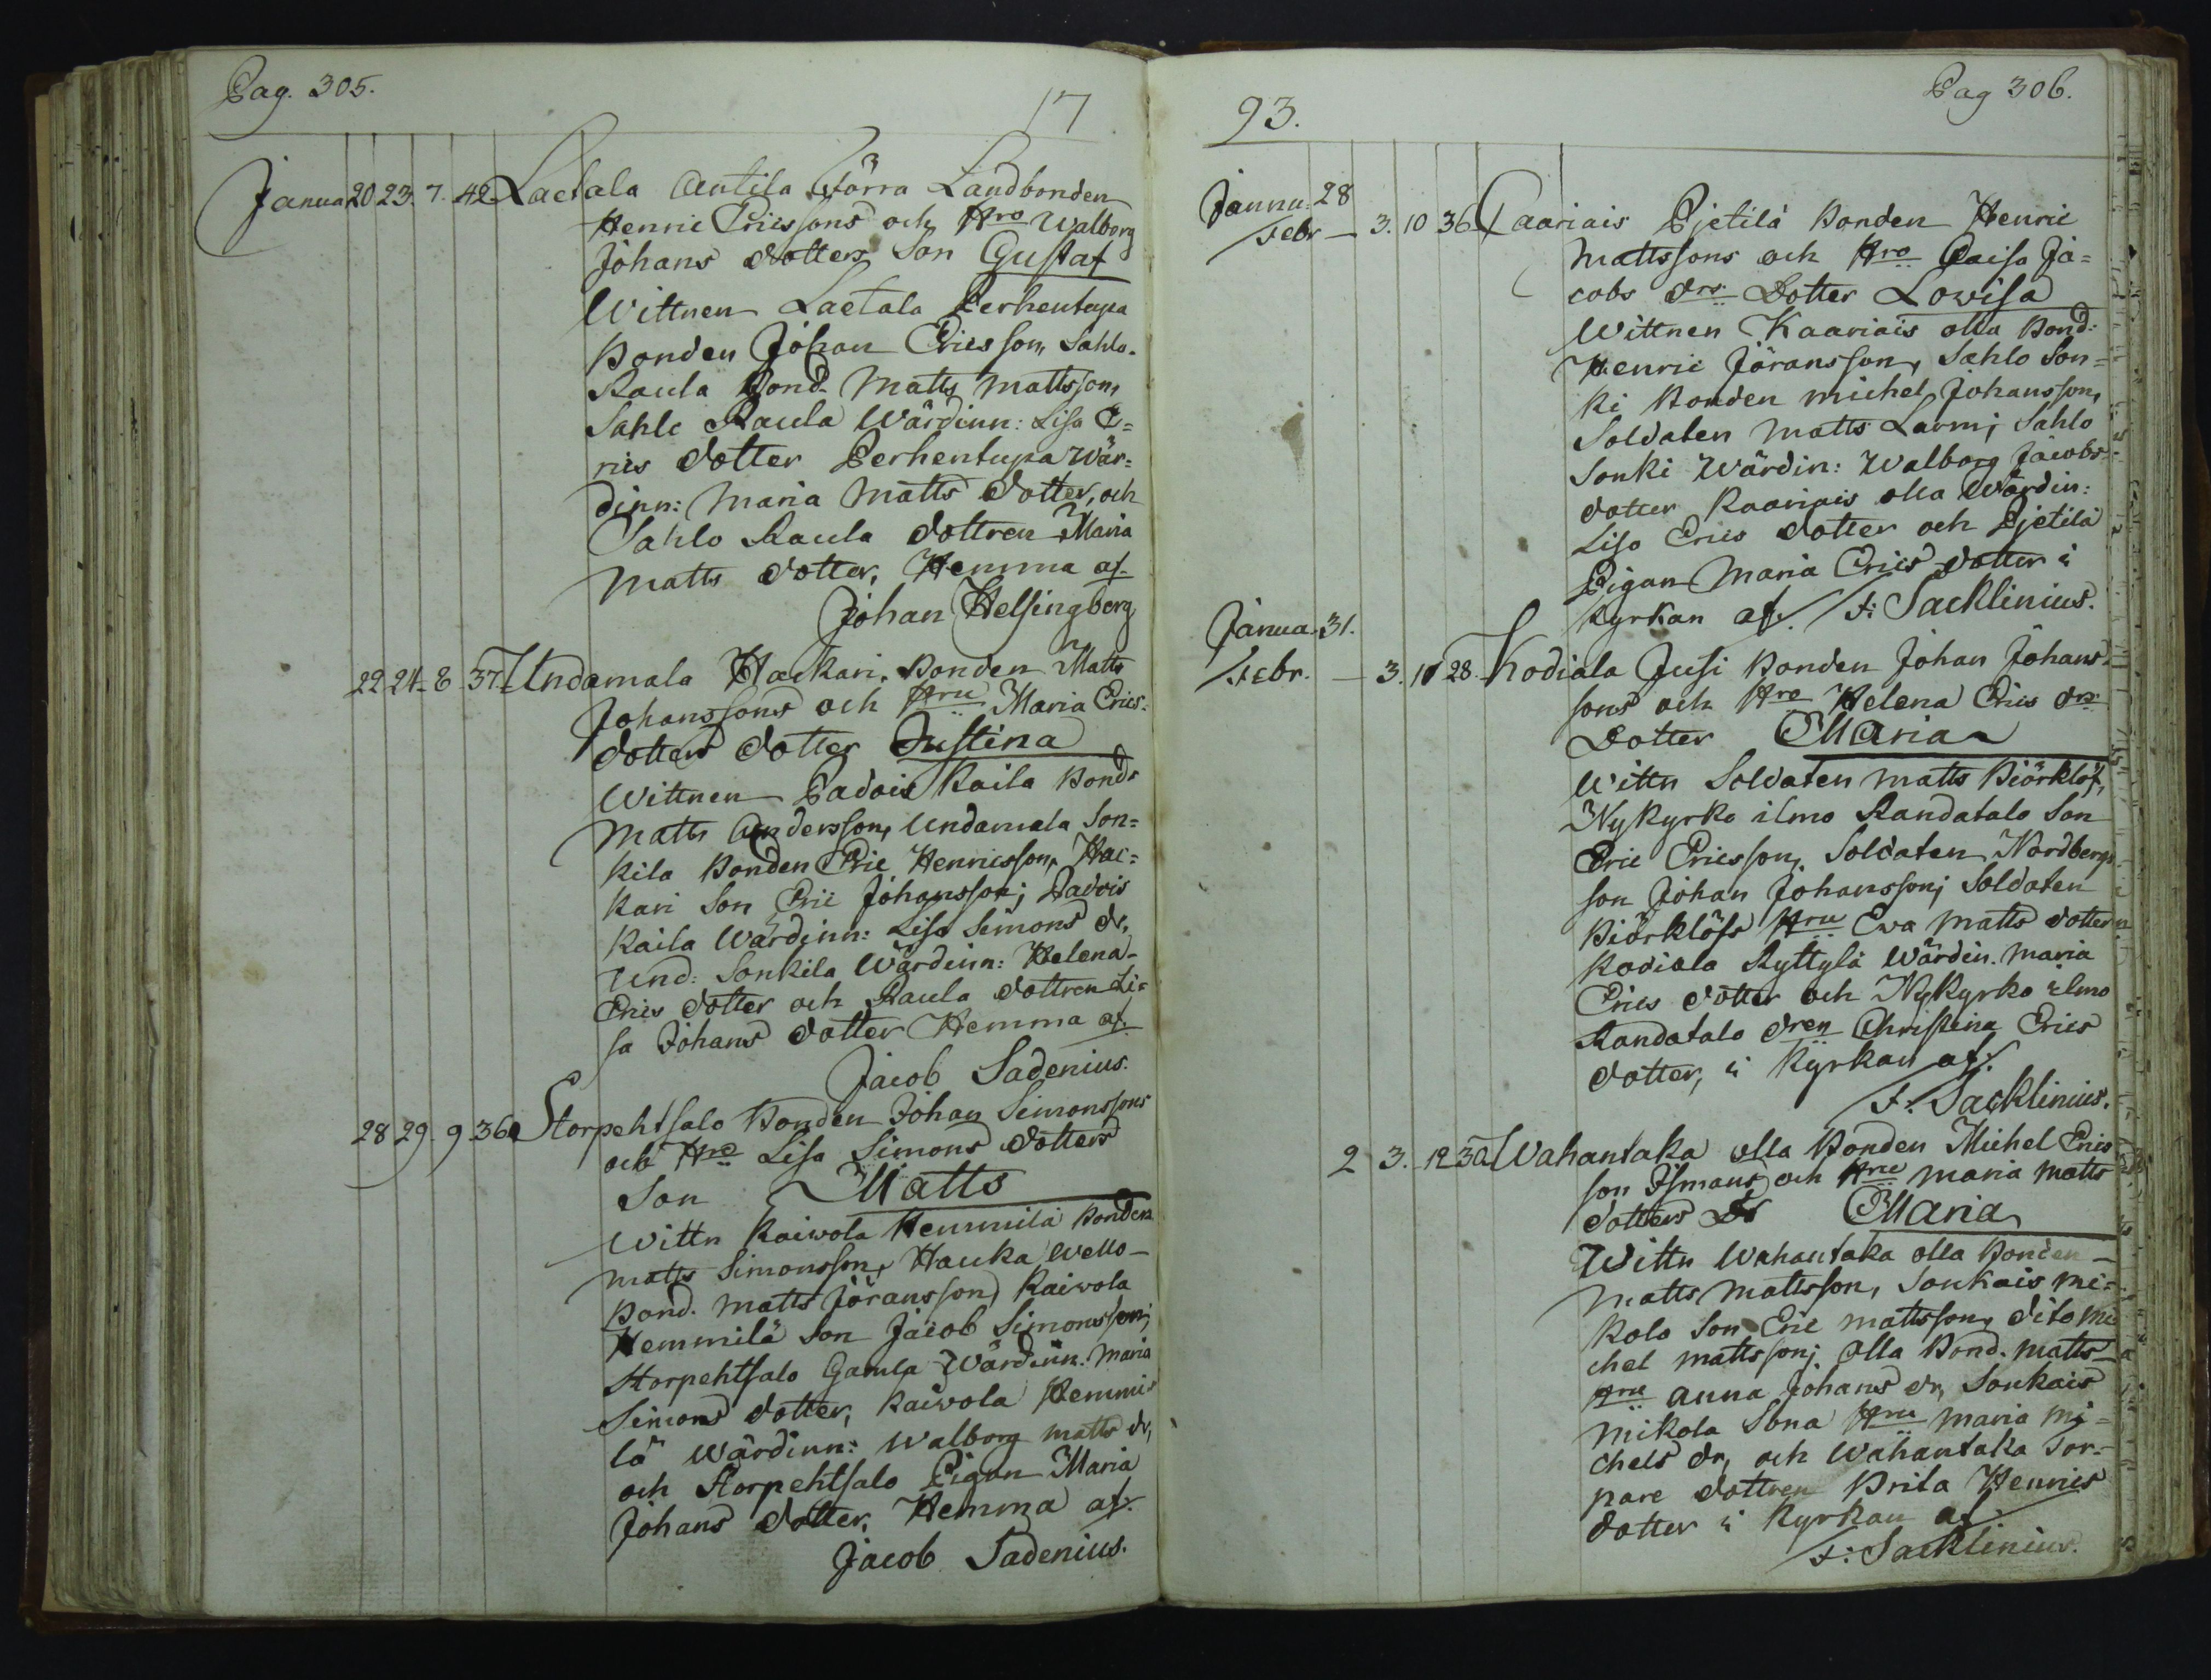 Pag. 305.
17
Janua 20 23. 7. 42 Laetala Antila Förra Landbonden
Henric Ericssons och Hro Walborg
Johans dotters Son Gustaf
Wittnen Laetala Perhentupa
Bonden Johan Ericsson, Sahlo-
Raula Bond. Matts Mattsson,
Sahlo Raula Wärdinn: Lisa E=
rics dotter Perhentupa Wär=
dinn: Maria Matts dotter, och
Sahlo Raula dottren Maria
Matts dotter, Hemma af
Johan Helsingberg
22 24 - 8 37 Undamala Hackari, Bonden Matts
Johanssons och Hru Maria Erics-
dotters dotter Justina
Wittnen Padois Kaila Bond:
Matts Andersson, Undamala Son=
kila Bonden Eric Henricsson, Hac=
kari Son Eric Johansson; Padois
Kaila Wärdinn: Lisa Simons dr,
Und: Sonkila Wärdinn: Helena
Erics dotter och Raula dottren Li=
sa Johans dotter Hemma af
Jacob Sadenius.
28 29. 9 36 Storpehtsalo Bonden Johan Simonssons
och Hro Lisa Simons dotters
Son Matts
Wittn Kaiwola Hemmilä Bonden
Matts Simonsson, Hauka Wello-
Bond. Matts Jöransson, Kaiwola
Hemmilä Son Jacob Simonsson;
Storpehtsalo Gamla Wärdinn. Maria
Simons dotter, Kaiwola Hemmi-
lä Wärdinn: Walborg Matts dr,
och Storpehtsalo Pigan Maria
Johans dotter, Hemma af.
Jacob Sadenius.
93.
Pag 306.
Janua: 28
Febr - 3. 10 36 Kaariais Pjetilä Bonden Henric
Mattssons och Hro Caisa Ja=
cobs drs Dotter Lowisa
Wittnen Kaariais olla Bond:
Henric Jöransson, Sahlo Son=
ki Bonden Michel Johansson,
Soldaten Matts Larm; Sahlo
Sonki Wärdin: Walborg Jacobs-
dotter Kaariais olla Wärdin:
Lisa Erics dotter och Pjetilä
Pigan Maria Erics dotter i
Kyrkan af. F: Sacklinius.
Janua. 31.
Febr. - 3. 11 28. Kodiala Jusi Bonden Johan Johans-
sons och Hro Helena Erics drs
Dotter Maria
Wittn Soldaten Matts Biörklöf,
Nykyrko ilmo Randatalo Son
Eric Ericsson, Soldaten Nordbergs
son Johan Johansson; Soldaten
Biörklöfs Hru Ewa Matts dotter
Kodiala Ryttylä Wärdin. Maria
Erics dotter och Nykyrko ilmo
Randatalo dren Christina Erics
dotter, i Kyrkan af.
F: Sacklinius.
2 3. 12 30 Wahantaka olla Bonden Michel Erics
son Ismans och Hru Maria Matts
dotters Dr Maria
Wittn Wahantaka olla Bonden
Matts Mattsson, Soukais Mi-
kola Son Eric Mattsson, dito Mi
chel Mattsson; olla Bond. Matts
Hru Anna Johans dr, Soukais
Mikola Sona Hru Maria Mi=
chels dr, och Wahantaka Tor-
pare dottren Brita Henrics
dotter i Kyrkan af
F: Sacklinius.